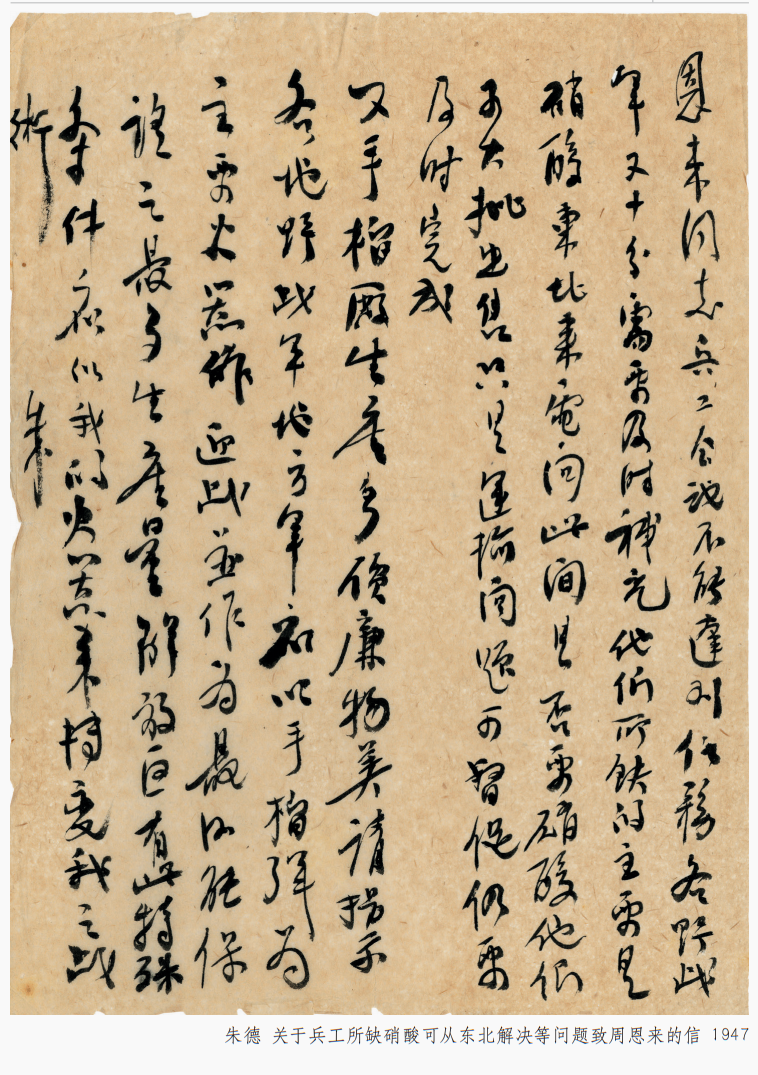 恩来同志兵工会议不能達到任務各野战
军又十分需要及时補充他们所缺的主要是
硝酸东北来电问此间是否要硝酸他们
可大批出售只是运输问题可督促仍要
及时完成
又手榴生产多价廉物美请指示
各地野战军地方军应以手榴弹为
主要火器作迎战並作为最后能保
证之最多生产量解放区有此特殊
条件应依我的火器来转变我之战
術
朱
朱德 关于兵工所缺硝酸可从东北解决等问题致周恩来的信 1947